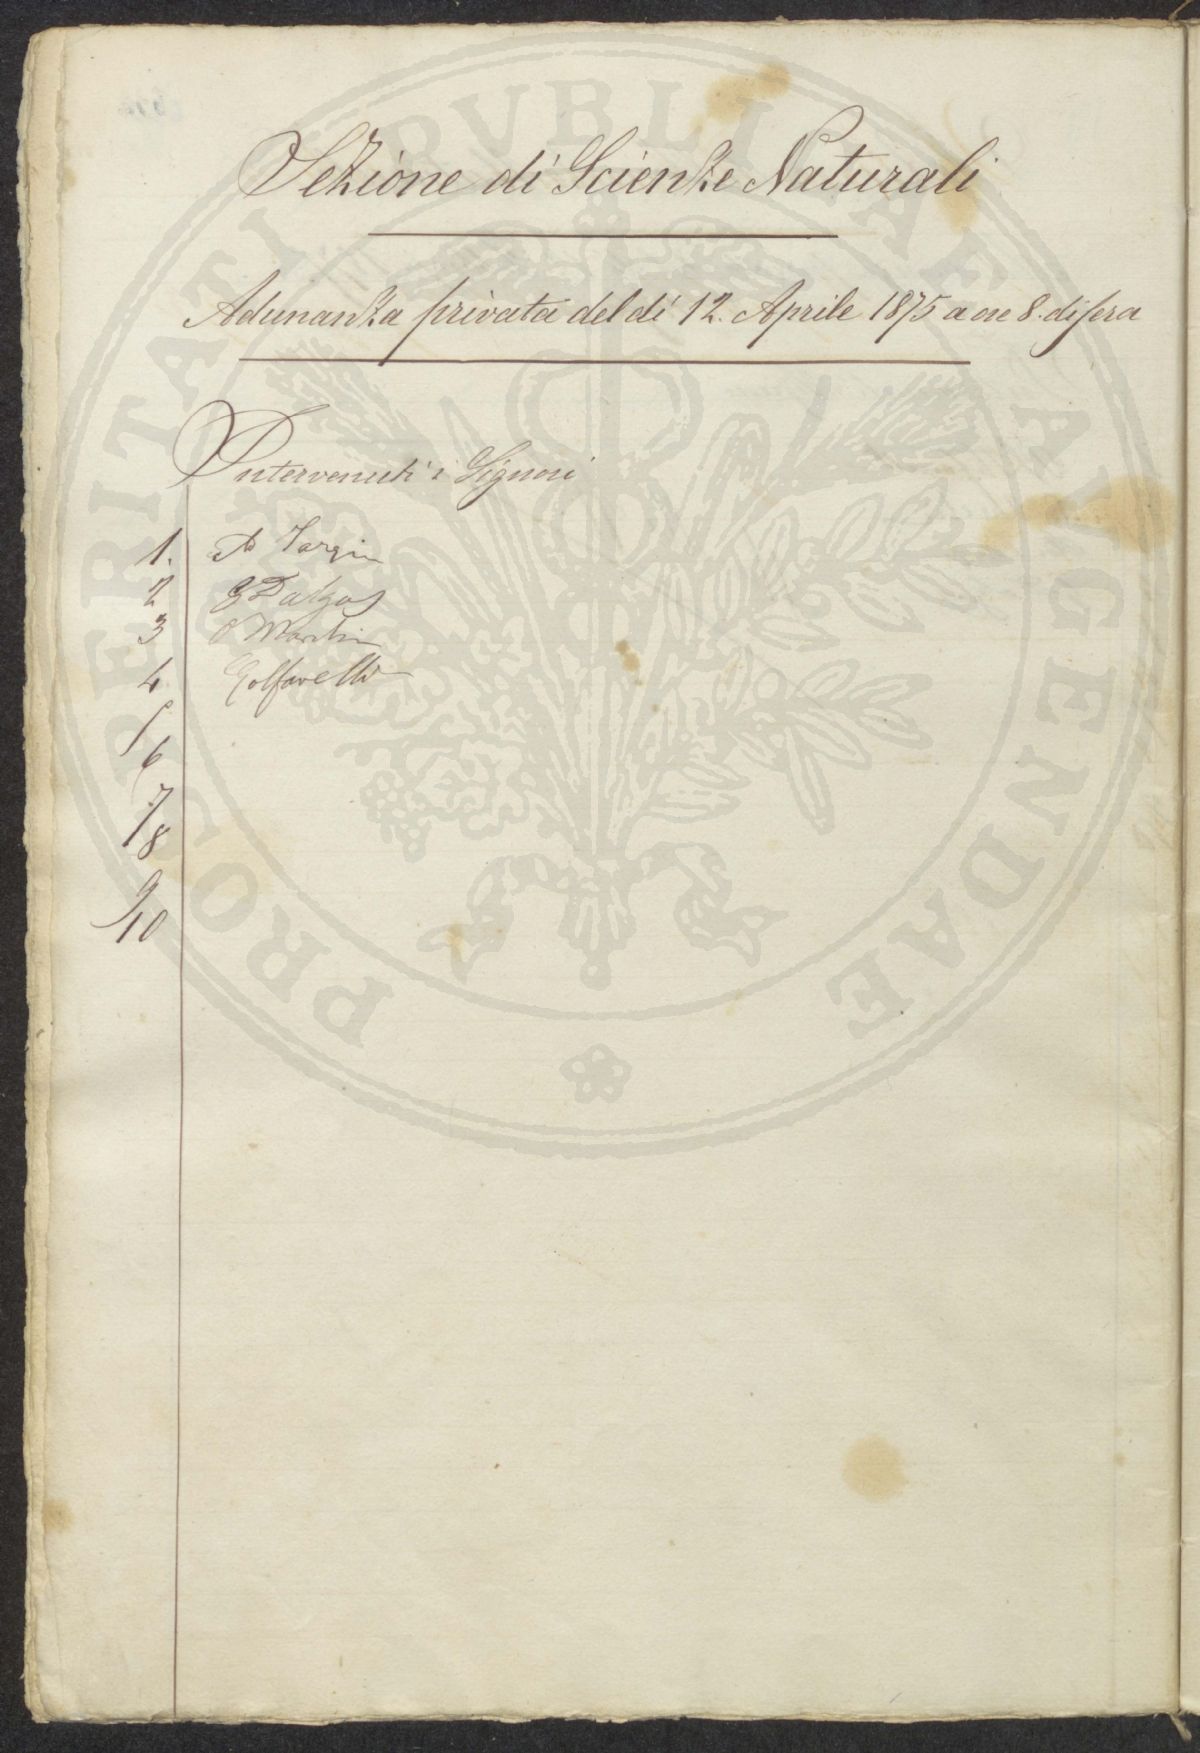 Sezione di Scienze Naturali
Adunanza privata del dì 12. Aprile 1875 a ore 8. di sera
Intervenuti i Signori
1. A Targioni
2
3 Marchi
4
5
6
7
8
9
10
PROSPERITATI PVBLICAE AVGENDAE